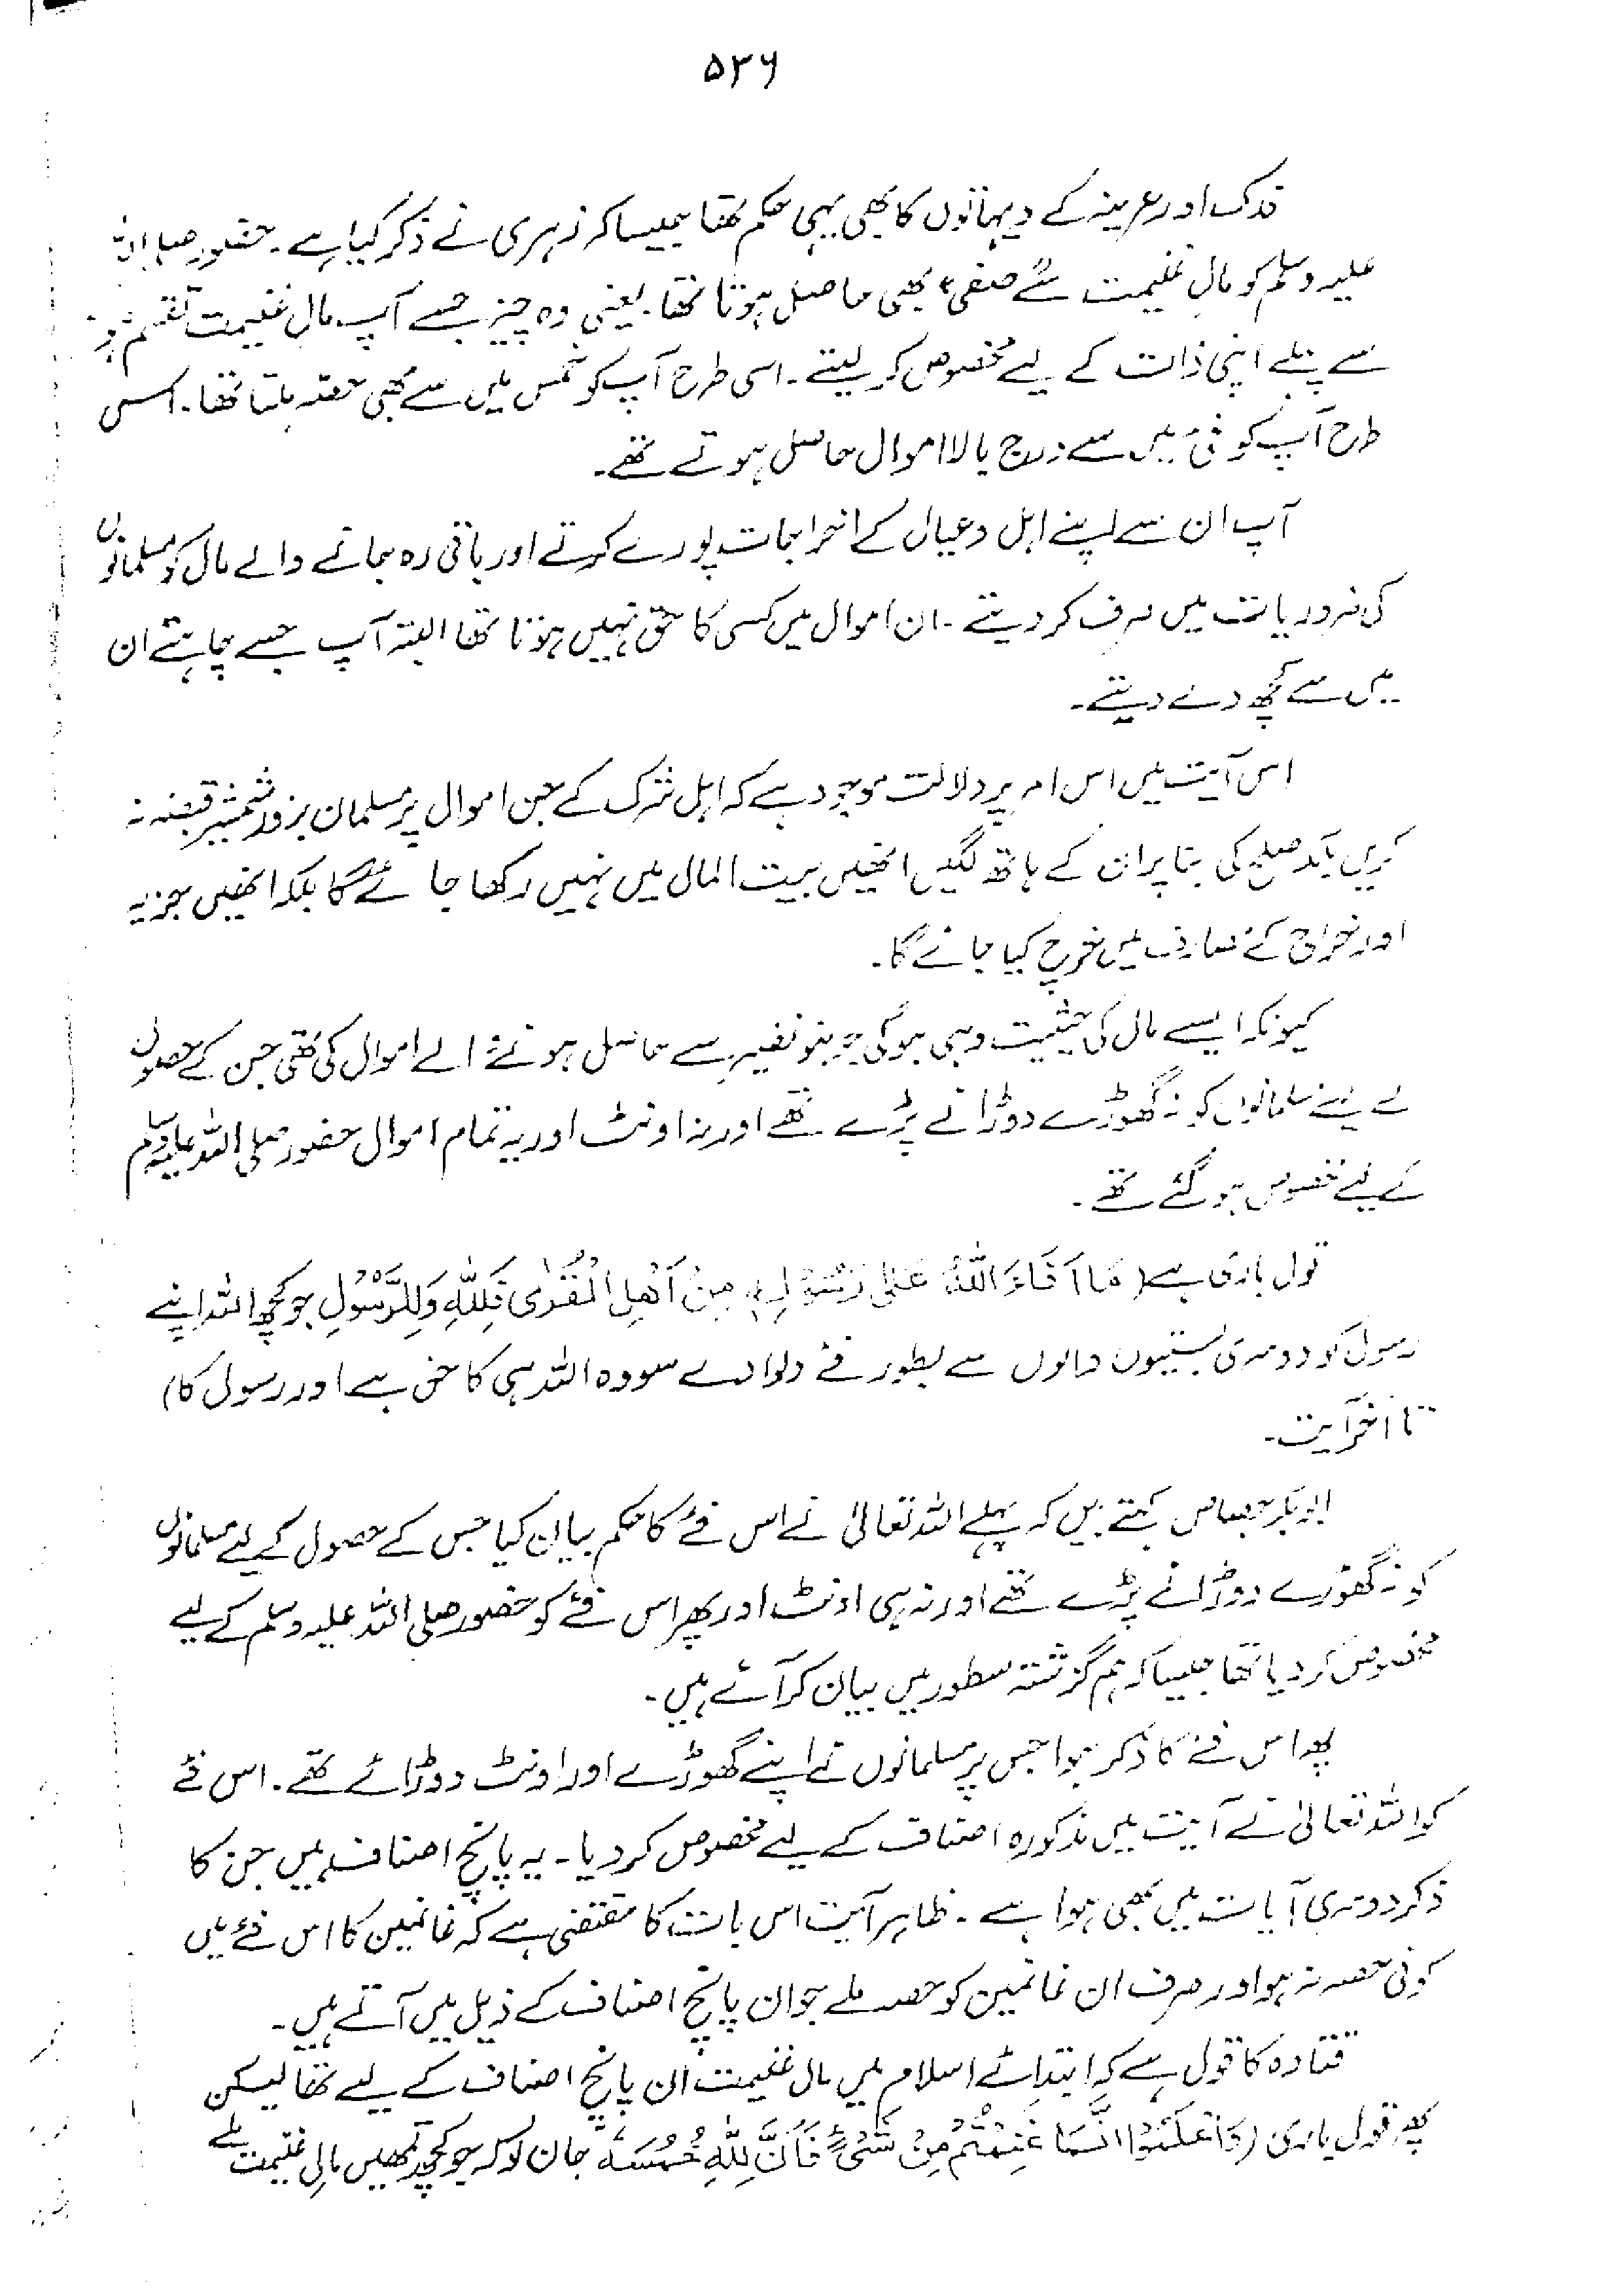 ۵۳۶
فدک اور عرینہ کے دیہاتوں کا بھی یہی حکم تھا جیسا کہ زہری نے ذکر کیا ہے۔ حضور صلی اللہ
علیہ وسلم کو مال غنیمت سے صفی بھی حاصل ہوتا تھا۔ یعنی وہ چیز جسے آپ مال غنیمت تقسیم ہونے
سے پہلے اپنی ذات کے لیے مخصوص کر لیتے۔ اسی طرح آپ کو خمس میں سے بھی حصہ ملتا تھا۔ اسی
طرح آپ کو فئ میں سے درج بالا اموال حاصل ہوتے تھے۔
آپ ان سے اپنے اہل و عیال کے اخراجات پورے کرتے اور باقی رہ جانے والے مال کو مسلمانوں
کی ضروریات میں صرف کر دیتے۔ ان اموال میں کسی کا حق نہیں ہوتا تھا البتہ آپ جسے چاہتے ان
میں سے کچھ دے دیتے۔
اس آیت میں اس امر پر دلالت موجود ہے کہ اہل شرک کے جن اموال پر مسلمان بزور شمشیر قبضہ نہ
کریں بلکہ صلح کی بنا پر ان کے ہاتھ لگیں انھیں بیت المال میں نہیں رکھا جائے گا بلکہ انھیں جزیہ
اور خراج کے مصارف میں خرچ کیا جائے گا۔
کیونکہ ایسے مال کی حیثیت وہی ہوگی جو بنو نضیر سے حاصل ہونے والے اموال کی تھی جن کے حصول
کے لیے مسلمانوں کو نہ گھوڑے دوڑانے پڑے تھے اور نہ اونٹ اور یہ تمام اموال حضور صلی اللہ علیہ وسلم
کے لیے مخصوص ہو گئے تھے۔
قول باری ہے (مَا اَفَاءَ اللّٰهُ عَلٰى رَسُوْلِهٖ مِنْ اَهْلِ الْقُرٰى فَلِلّٰهِ وَلِلرَّسُوْلِ جو کچھ اللہ اپنے
رسول کو دوسری بستیوں والوں سے بطور فئے دلوا دے سو وہ اللہ ہی کا حق ہے اور رسول کا)
تا آخر آیت۔
ابوبکر جصاص کہتے ہیں کہ پہلے اللہ تعالیٰ نے اس فئے کا حکم بیان کیا جس کے حصول کے لیے مسلمانوں
کو نہ گھوڑے دوڑانے پڑے تھے اور نہ ہی اونٹ اور پھر اس فئے کو حضور صلی اللہ علیہ وسلم کے لیے
مخصوص کر دیا تھا جیسا کہ ہم گزشتہ سطور میں بیان کر آئے ہیں۔
پھر اس فئے کا ذکر ہوا جس پر مسلمانوں نے اپنے گھوڑے اور اونٹ دوڑائے تھے۔ اس فئے
کو اللہ تعالیٰ نے آیت میں مذکورہ اصناف کے لیے مخصوص کر دیا۔ یہ پانچ اصناف ہیں جن کا
ذکر دوسری آیات میں بھی ہوا ہے۔ ظاہر آیت اس بات کا مقتضی ہے کہ غانمین کا اس فئے میں
کوئی حصہ نہ ہو اور صرف ان غانمین کو حصہ ملے جو ان پانچ اصناف کے ذیل میں آتے ہیں۔
قتادہ کا قول ہے کہ ابتدائے اسلام میں مال غنیمت ان پانچ اصناف کے لیے تھا لیکن
پھر قول باری (وَاعْلَمُوْا اَنَّمَا غَنِمْتُمْ مِنْ شَیْءٍ فَاَنَّ لِلّٰهِ خُمُسَهٗ جان لو کہ جو کچھ تمھیں مال غنیمت ملے